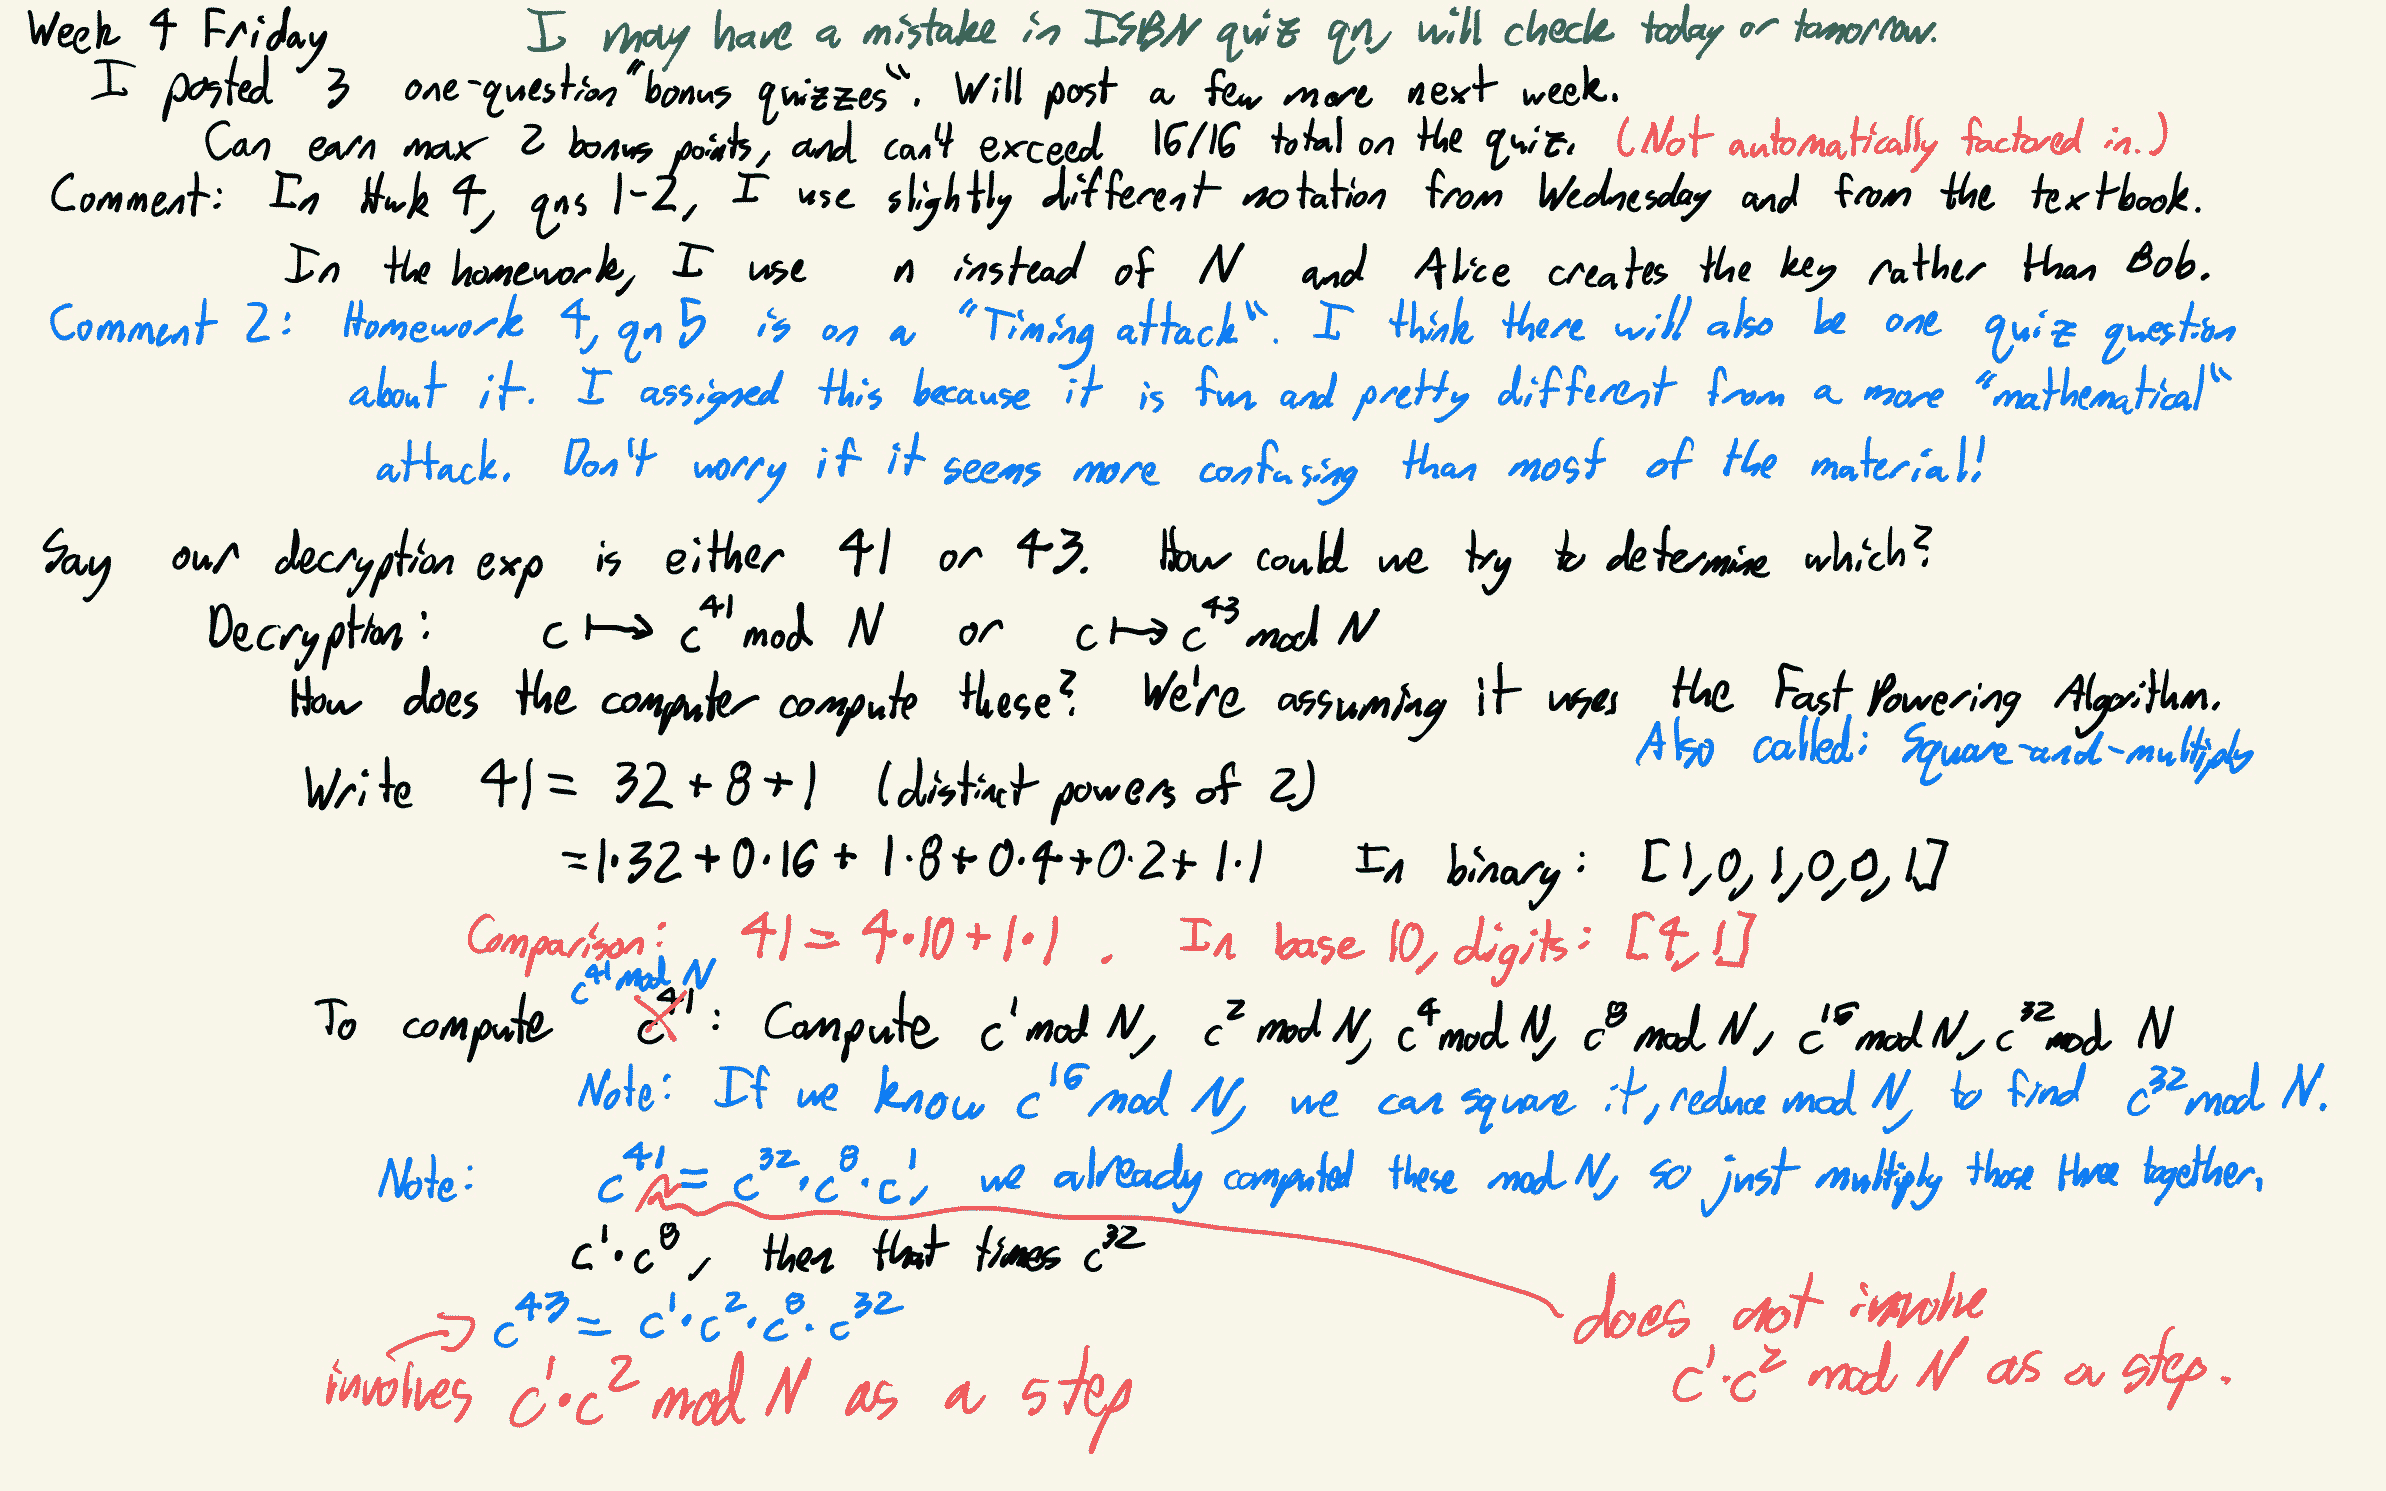 Week 4 Friday I may have a mistake in ISBN quiz qn, will check today or tomorrow.
I posted 3 one-question "bonus quizzes". Will post a few more next week.
Can earn max 2 bonus points, and can't exceed 16/16 total on the quiz. (Not automatically factored in.)
Comment: In Hwk 4, qns 1-2, I use slightly different notation from Wednesday and from the textbook.
In the homework, I use n instead of N and Alice creates the key rather than Bob.
Comment 2: Homework 4, qn 5 is on a "Timing attack". I think there will also be one quiz question
about it. I assigned this because it is fun and pretty different from a more "mathematical"
attack. Don't worry if it seems more confusing than most of the material!
Say our decryption exp is either 41 or 43. How could we try to determine which?
Decryption: c ↦ c⁴¹ mod N or c ↦ c⁴³ mod N
How does the computer compute these? We're assuming it uses the Fast Powering Algorithm.
Also called: Square-and-multiply
Write 41 = 32 + 8 + 1 (distinct powers of 2)
= 1·32 + 0·16 + 1·8 + 0·4 + 0·2 + 1·1 In binary: [1,0,1,0,0,1]
Comparison: 41 = 4·10 + 1·1 . In base 10, digits: [4,1]
c⁴¹ mod N
To compute c⁴¹: Compute c¹ mod N, c² mod N, c⁴ mod N, c⁸ mod N, c¹⁶ mod N, c³² mod N
Note: If we know c¹⁶ mod N, we can square it, reduce mod N, to find c³² mod N.
Note: c⁴¹ = c³²·c⁸·c¹, we already computed these mod N, so just multiply those three together.
c¹·c⁸, then that times c³²
c⁴³ = c¹·c²·c⁸·c³²
does not involve
c¹·c² mod N as a step.
involves c¹·c² mod N as a step